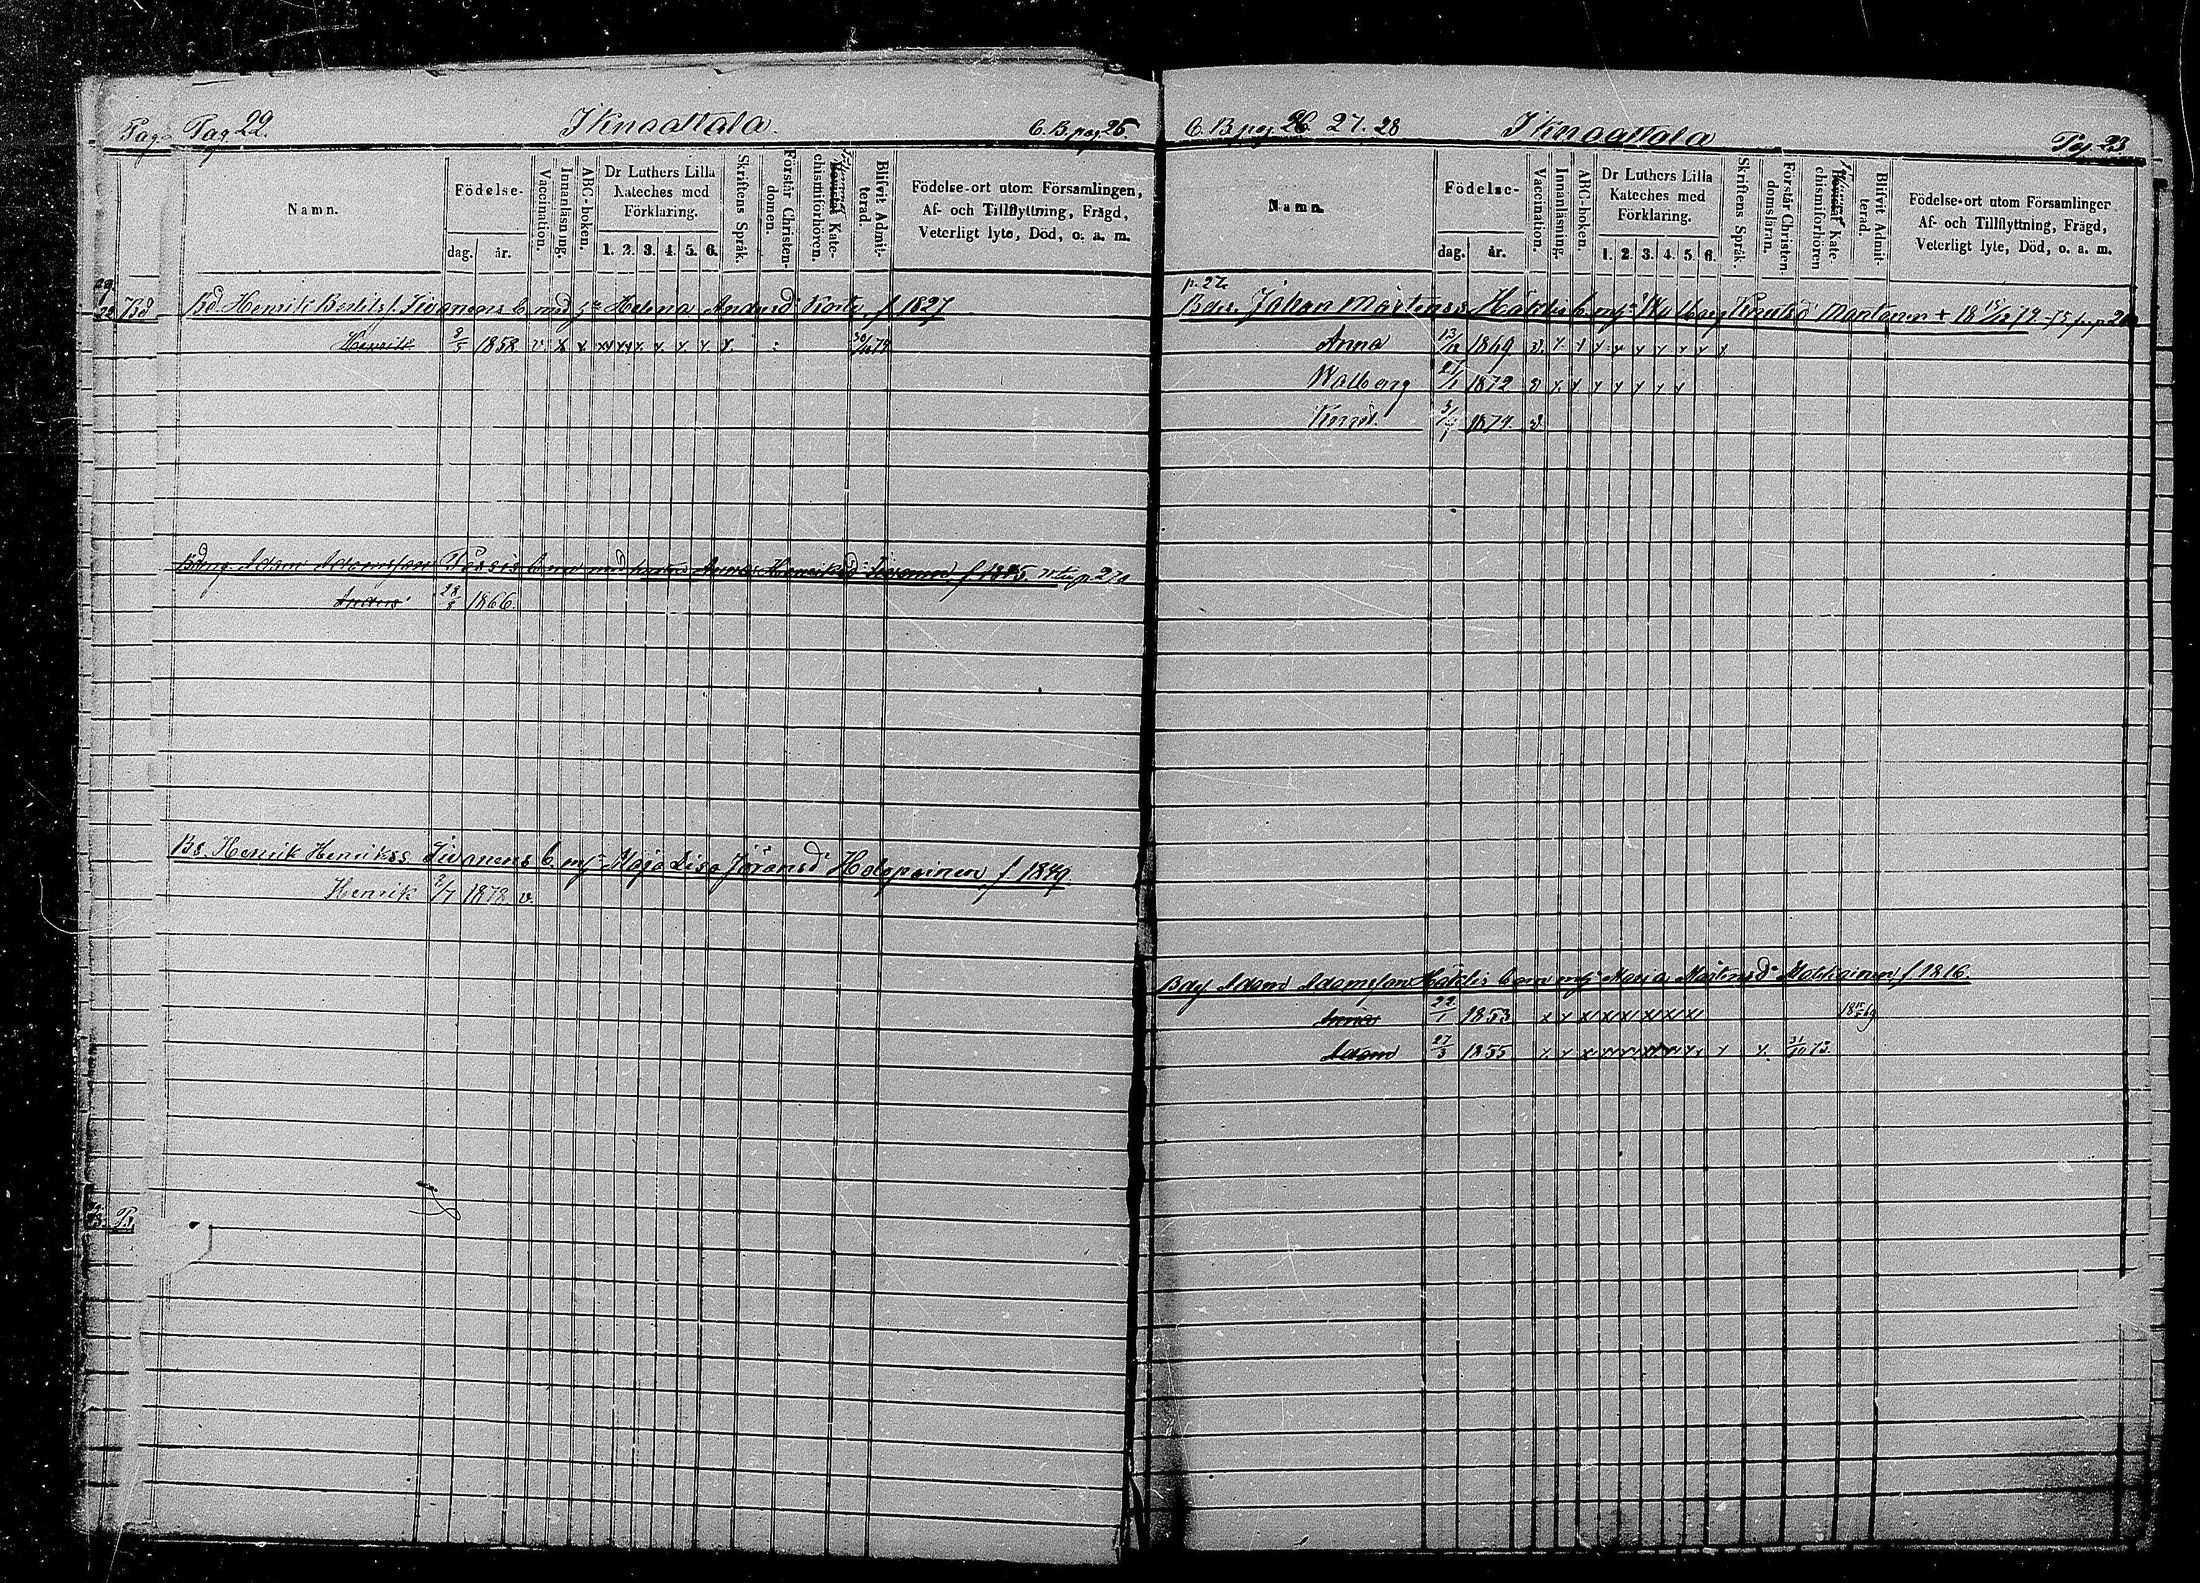 Pag. Pag. 22. Iknoattala. C. B. pag 25.
Namn. Födelse- dag. år. Vaccination. Innanläsning. ABC-boken. Dr Luthers Lilla Kateches med Förklaring. 1. 2. 3. 4. 5. 6. Skriftens Språk. Förstår Christendomen. Bevistat Katechismiförhören. Blifvit Admitterad. Födelse-ort utom Församlingen, Af- och Tillflyttning, Frägd, Veterligt lyte, Död, o. a. m.
22 Bd
Bd. Henrik Bertilsf. Iivonens b. med h. Helena Andersd Kont. f. 1827
Henrik 2/5 1858 v. x x. xx xx x. x. x. x. x. 30/11 79
Bdmg. Adam Adamsson Tossis barn med hustru Anna Henriksd Iivonen f 1845
Anders 28/3 1866.
Bs. Henrik Henrikss. Iivonens b. m. h. Maja Lisa Jöransd Holopainen f 1849
Henrik 2/7 1878 v.
C. B. pag 26. 27. 28 Iknoattala Pag 23
Namn. Födelse- dag. år. Vaccination. Innanläsning. ABC-boken. Dr Luthers Lilla Kateches med Förklaring. 1. 2. 3. 4. 5. 6. Skriftens Språk. Förstår Christendomsläran. Bevistat Katechismiförhören Blifvit Admitterad. Födelse-ort utom Församlingen Af- och Tillflyttning, Frägd, Veterligt lyte, Död, o. a. m.
p. 27.
Johan Mårtenss Häklis b. m. h. Walborg Knutsd Mantonen + 18 15/12 79
Anna 13/12 1869 v. x x x x x x x x x
Walborg 21/1 1872 v x x x x x x x
Knut. 3/7 1874. v
Adam Adamsson Häklis barn m. h. Maria Mårtensd f 1816.
Anna 22/1 1853 x x x x x x x x x 18 15/6 69
Adam 27/3 1855 x x x x x x x x x x x. 31/10 73.